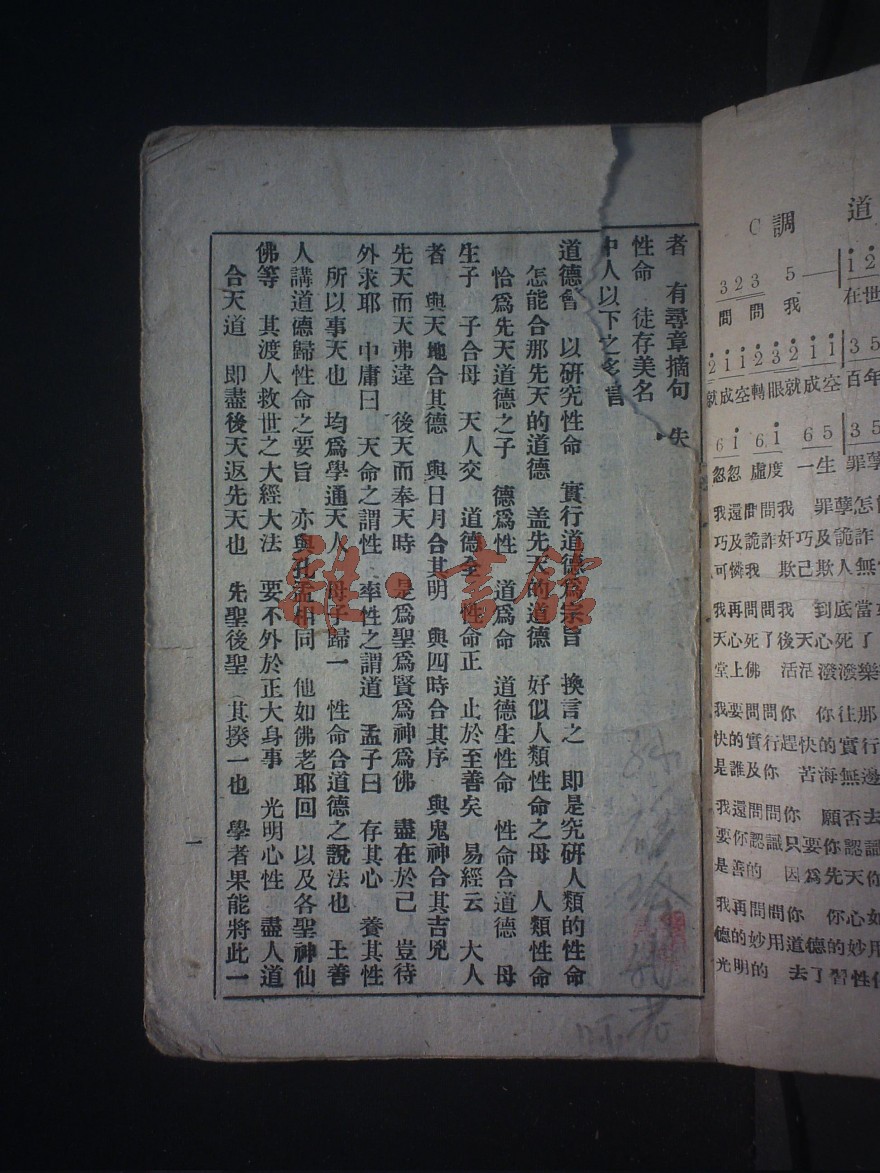 者　有尋章摘句　失
性命　徒存美名
中人以下之
道德會　以研究性命　實行道德爲宗旨　換言之　即是究研人類的性命
怎能合那先天的道德　盖先天的道德　好似人類性命之母　人類性命
恰爲先天道德之子　德爲性　道爲命　道德生性命　性命合道德　母
生子　子合母　天人交　道德全　性命正　止於至善矣　易經云　大人
者　與天地合其德　與日月合其明　與四時合其序　與鬼神合其吉兇
先天而天弗違　後天而奉天時　是爲聖爲賢爲神爲佛　盡在於己　豈待
外求耶　中庸曰　天命之謂性　率性之謂道　孟子曰　存其心　養其性
所以事天也　均爲學通天人　母子歸一　性命合道德之說法也　王善
人講道德歸性命之要旨　亦與孔孟相同　他如佛老耶回　以及各聖神仙
佛等　其渡人救世之大經大法　要不外於正大身事　光明心性　盡人道
合天道　即盡後天返先天也　先聖後聖　其揆一也　學者果能將此一
一
雜·書館
道
C 調
3 2 3 5 — | 1 2
問 問 我 在世
2 1 1 2 3 2 1 1 | 3 5
就成空轉眼就成空 百年
6 1 6 1 6 5 | 3 5
忽忽 虛度 一生 罪孽
我還問問我　罪孽怎
巧及詭詐奸巧及詭詐
可憐我　欺己欺人無
我再問問我　到底當
天心死了後天心死了
堂上佛　活活潑潑樂
我要問問你　你往那
快的實行趕快的實行
是誰及你　苦海無邊
我還問問你　願否去
要你認識只要你認識
是善的　因爲先天你
我再問問你　你心如
德的妙用道德的妙用
光明的　去了習性